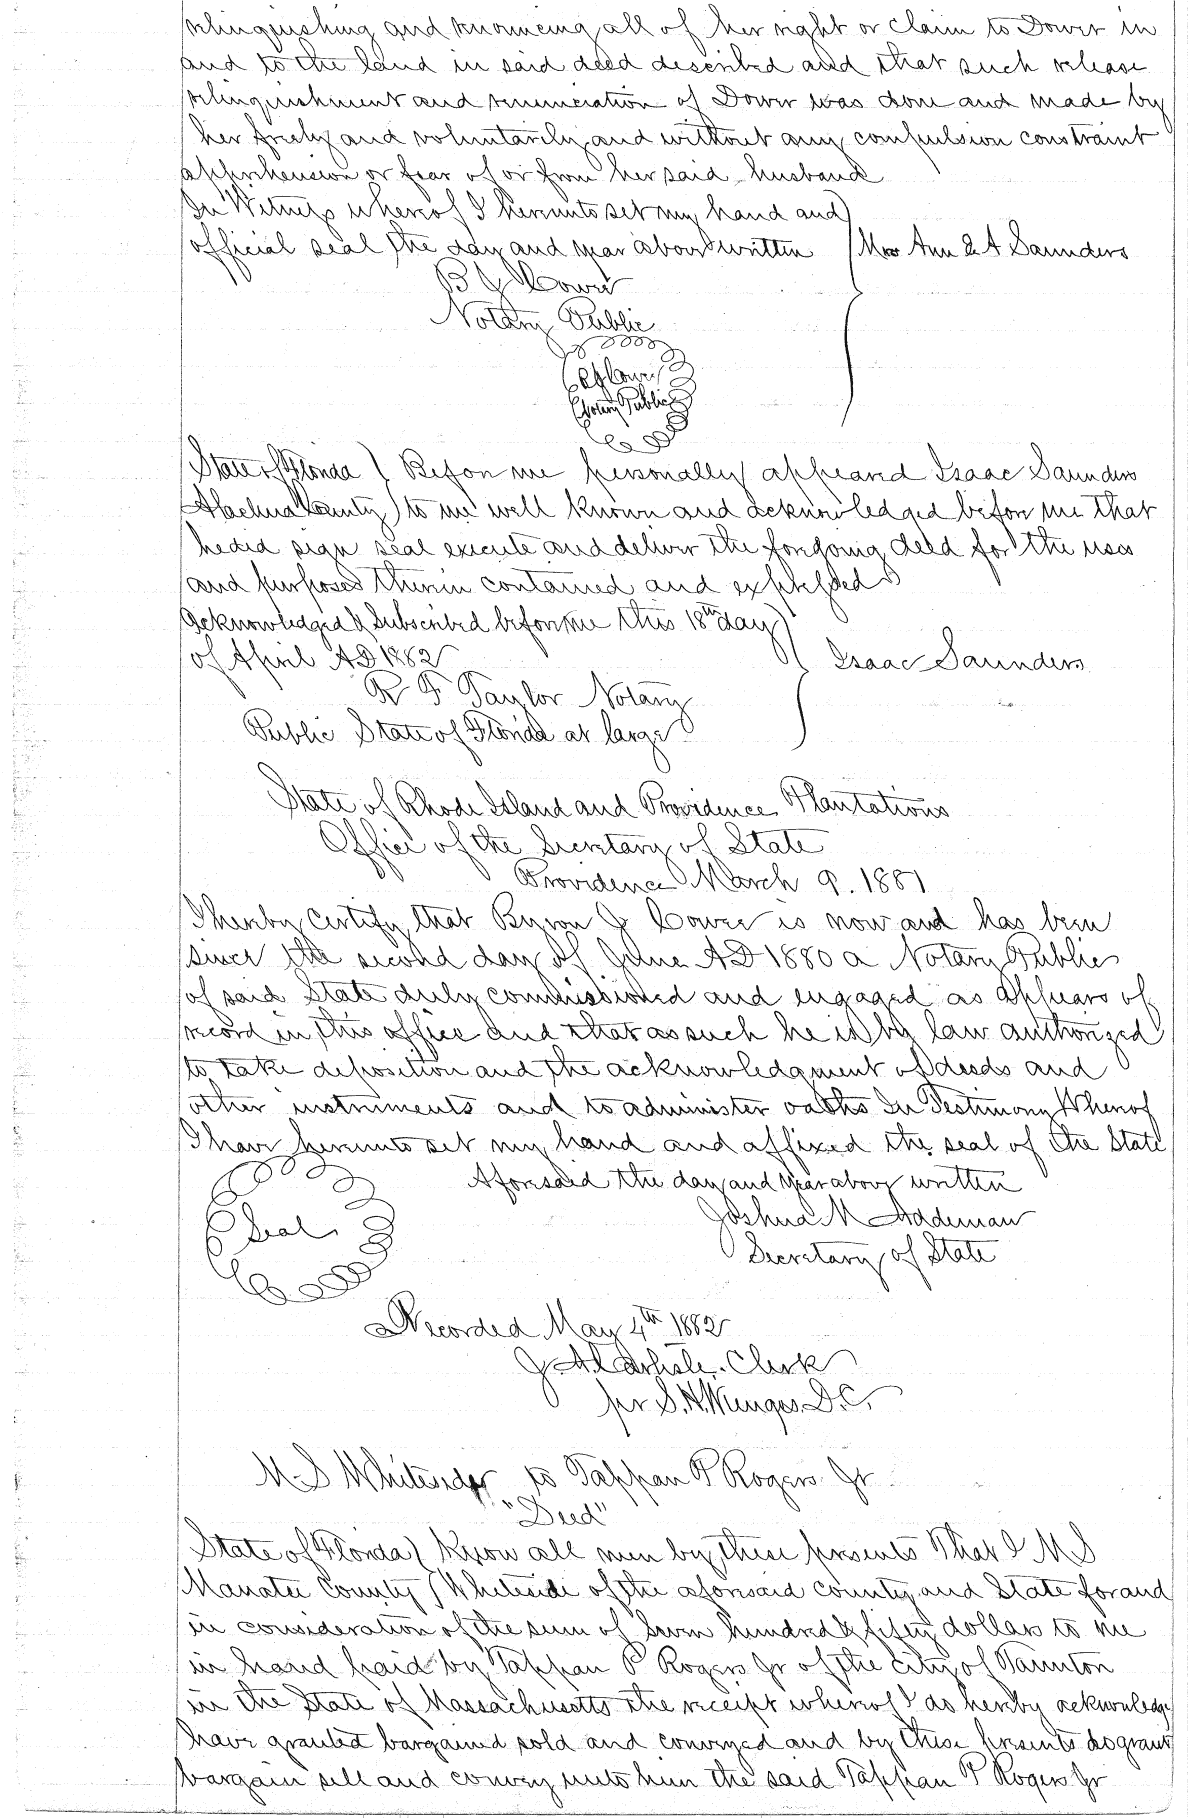 relinquishing and renouncing all of her right or claim to Dower in
and to the land in said deed described and that such release
relinquishment and renunciation of Dower was done and made by
her freely and voluntarily and without any compulsion constraint
apprehension or fear of or from her said husband
In Witness whereof I hereunto set my hand and
official seal the day and year above written Mrs Ann E A Saunders
B J Cowee
Notary Public
B J Cowee
Notary Public
State of Florida Before me personally appeared Isaac Saunders
Alachua County to me well known and acknowledged before me that
he did sign seal execute and deliver the foregoing deed for the uses
and purposes therein contained and expressed
Acknowledged & Subscribed before me this 18th day
of April AD 1882 Isaac Saunders
R F Taylor Notary
Public State of Florida at large
State of Rhode Island and Providence Plantations
Office of the Secretary of State
Providence March 9. 1881
I hereby certify that Byron J Cowee is now and has been
since the second day of June AD 1880 a Notary Public
of said State duly commissioned and engaged as appears of
record in this office and that as such he is by law authorized
to take deposition and the acknowledgment of deeds and
other instruments and to administer oaths In Testimony Whereof
I have hereunto set my hand and affixed the seal of the State
Aforesaid the day and year above written
Seal
Joshua M Addeman
Secretary of State
Recorded May 4th 1882
J A Carlisle. Clerk
per S. H. Wienges. D.C.
M S Whiteside to Tappan P Rogers Jr
"Deed"
State of Florida Know all men by these presents That I M S
Manatee County Whiteside of the aforesaid county and State for and
in consideration of the sum of Seven hundred & fifty dollars to me
in hand paid by Tappan P Rogers Jr of the city of Taunton
in the State of Massachusetts the receipt whereof I do hereby acknowledge
have granted bargained sold and conveyed and by these presents do grant
bargain sell and convey unto him the said Tappan P Rogers Jr